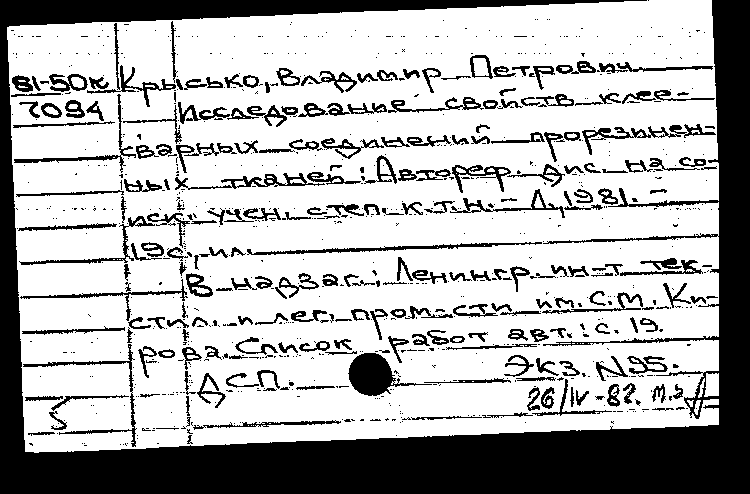 81-50к Крысько, Владимир Петрович
7094 Исследование свойств клее-
сварных соединений прорезинен-
ных тканей : Автореф. дис. на со-
иск. учен. степ. к.т.н. - Л., 1981. -
19с., ил.
В надзаг.: Ленингр. ин-т тек-
стил. и лег. пром-сти им. С.М. Ки-
рова. Список работ авт.: с. 19.
ДСП. Экз. N95.
5 26/IV-82.